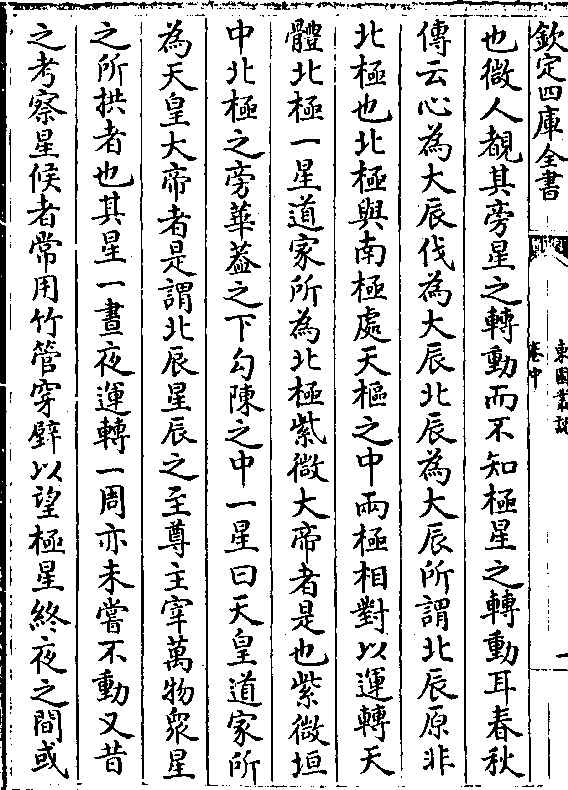 欽定四庫全書
東園叢說
卷中
也微人覩其旁星之轉動而不知極星之轉動耳春秋
傳云心為大辰伐為大辰北辰為大辰所謂北辰原非
北極也北極與南極處天樞之中兩極相對以運轉天
體北極一星道家所為北極紫微大帝者是也紫微垣
中北極之旁華葢之下勾陳之中一星曰天皇道家所
為天皇大帝者是謂北辰星辰之至尊主宰萬物衆星
之所拱者也其星一晝夜運轉一周亦未嘗不動又昔
之考察星候者常用竹管穿壁以望極星終夜之間或